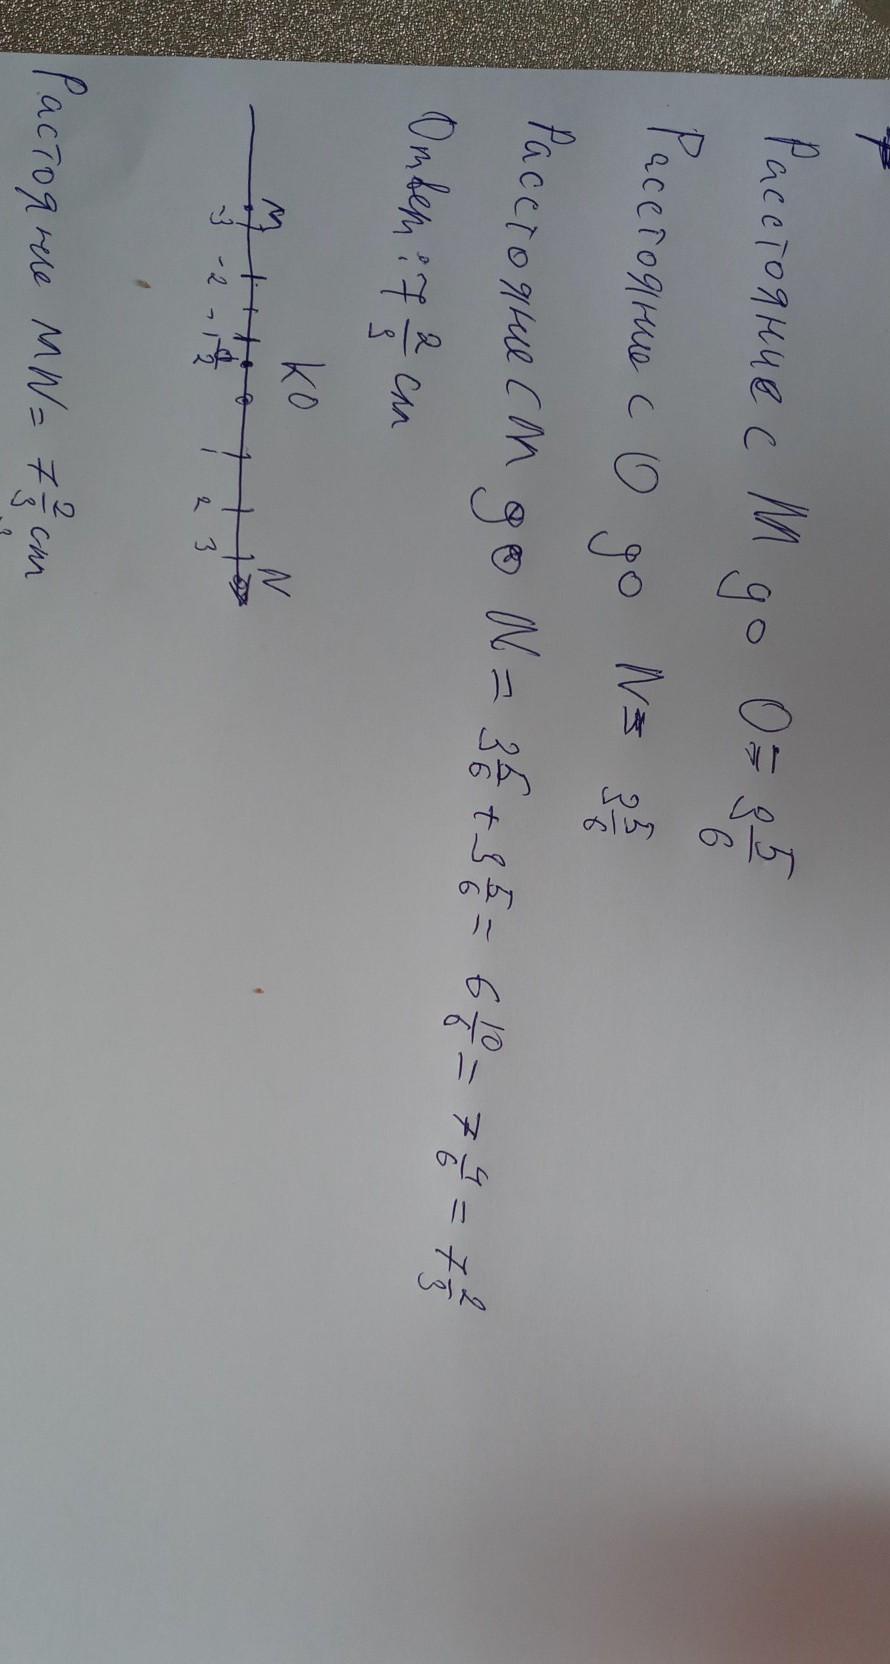 Расстояние с M до O = 3 5/6
Расстояние с O до N = 3 5/6
Расстояние с M до N = 3 5/6 + 3 5/6 = 6 10/6 = 7 4/6 = 7 2/3
Ответ: 7 2/3 см
M K O N
-3 -2 -1 1 2 3
Растояние MN = 7 2/3 см